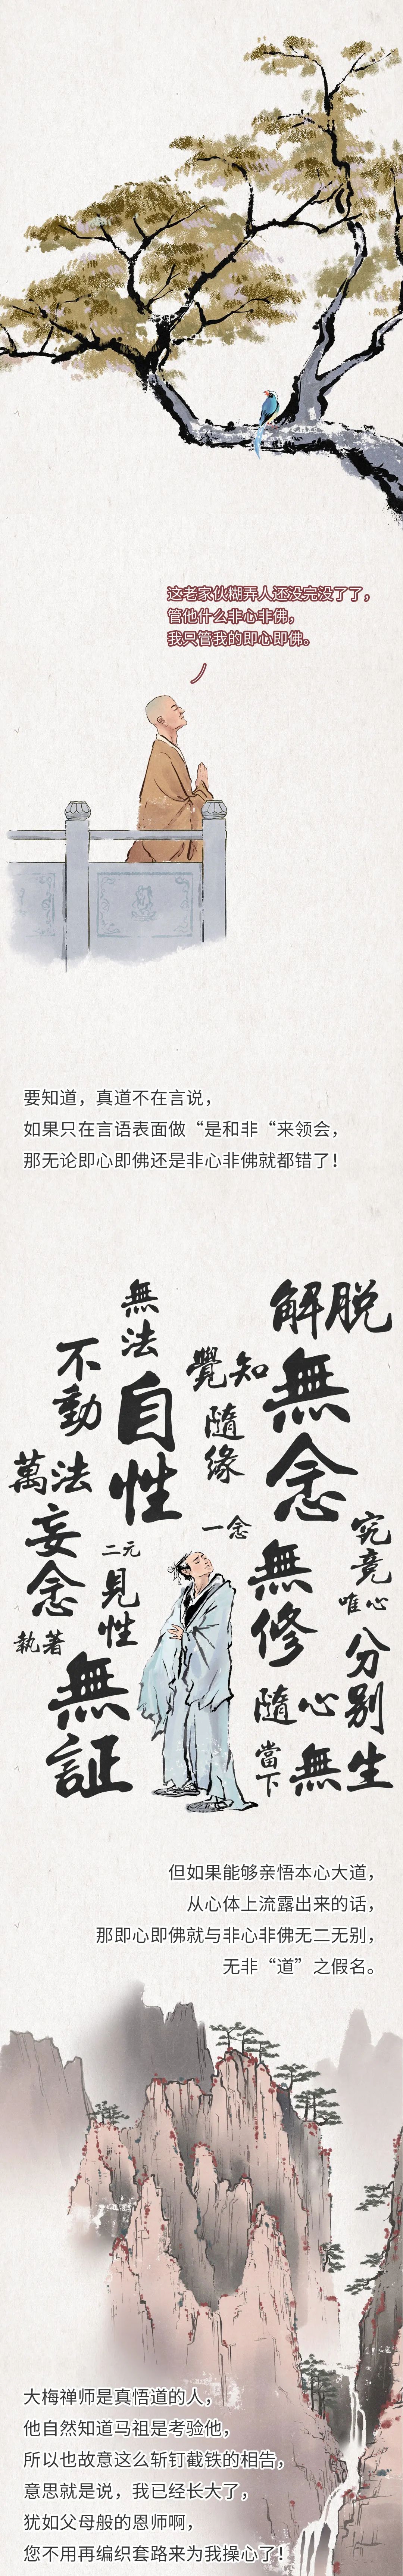 这老家伙糊弄人还没完没了了，
管他什么非心非佛，
我只管我的即心即佛。
要知道，真道不在言说，
如果只在言语表面做“是和非“来领会，
那无论即心即佛还是非心非佛就都错了！
解脱
無法
不動
覺知
自性
無念
隨緣
萬法
妄念
一念
究竟
二元
見性
無修
唯心
執著
分别
無証
隨心
當下
無生
但如果能够亲悟本心大道，
从心体上流露出来的话，
那即心即佛就与非心非佛无二无别，
无非“道”之假名。
大梅禅师是真悟道的人，
他自然知道马祖是考验他，
所以也故意这么斩钉截铁的相告，
意思就是说，我已经长大了，
犹如父母般的恩师啊，
您不用再编织套路来为我操心了！